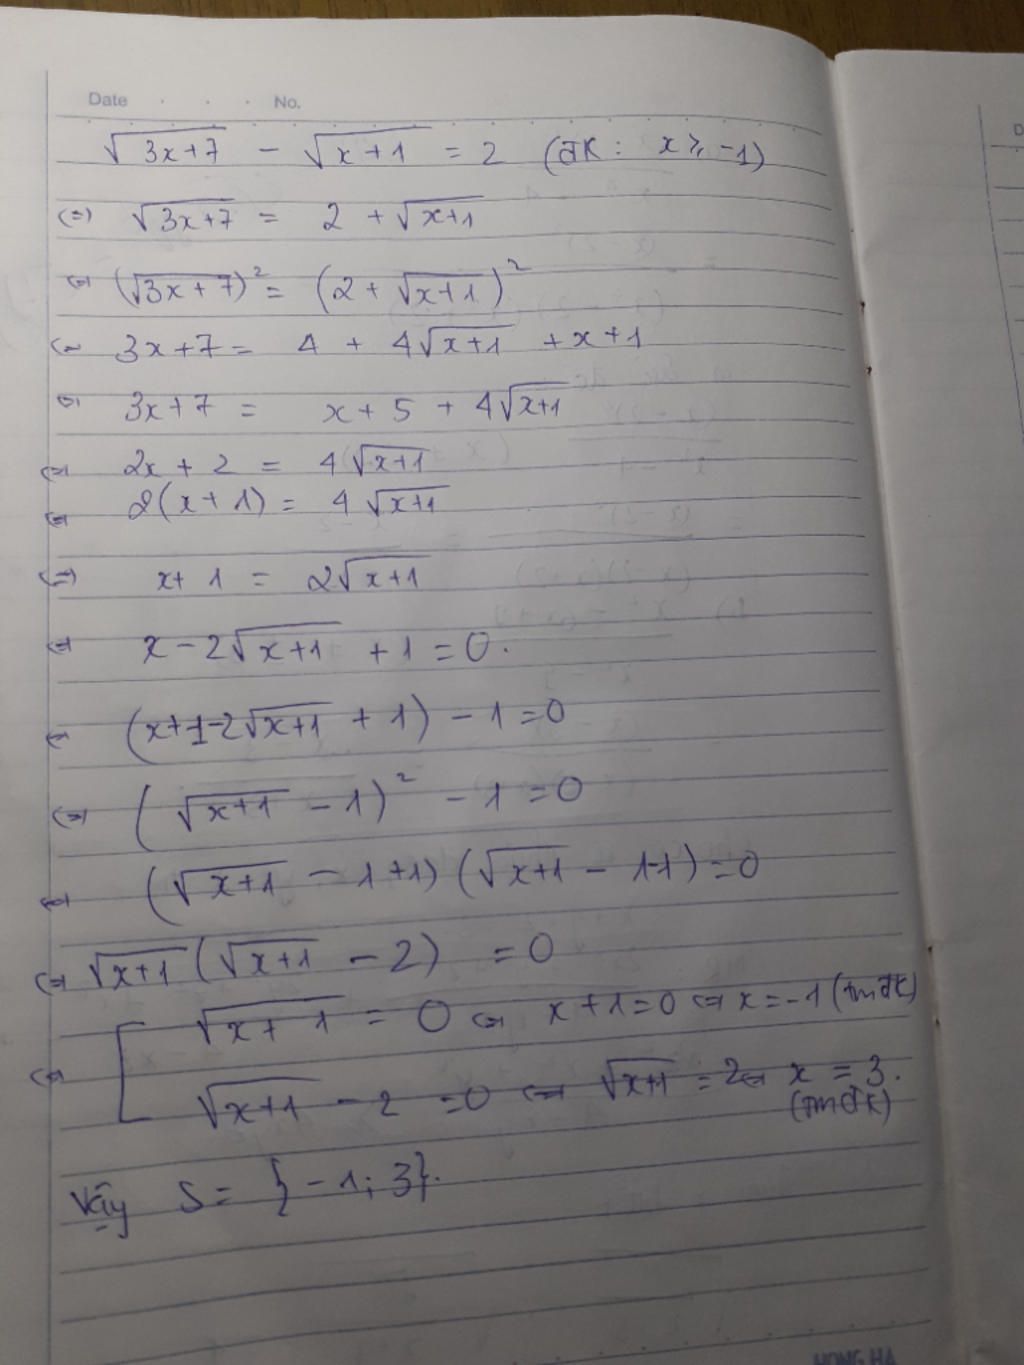 Date No.
√(3x+7) - √(x+1) = 2 (ĐK: x ≥ -1)
⇔ √(3x+7) = 2 + √(x+1)
⇔ (√(3x+7))² = (2 + √(x+1))²
⇔ 3x+7 = 4 + 4√(x+1) + x+1
⇔ 3x+7 = x+5 + 4√(x+1)
⇔ 2x + 2 = 4√(x+1)
⇔ 2(x+1) = 4√(x+1)
⇔ x+1 = 2√(x+1)
⇔ x - 2√(x+1) + 1 = 0.
⇔ (x+1-2√(x+1) + 1) - 1 = 0
⇔ (√(x+1) - 1)² - 1 = 0
⇔ (√(x+1) - 1+1)(√(x+1) - 1-1) = 0
⇔ √(x+1)(√(x+1) - 2) = 0
⇔ [ √(x+1) = 0 ⇔ x+1=0 ⇔ x=-1 (tmđk)
√(x+1) - 2 = 0 ⇔ √(x+1) = 2 ⇔ x = 3.
(tmđk)
Vậy S = {-1; 3}.
HONG HA